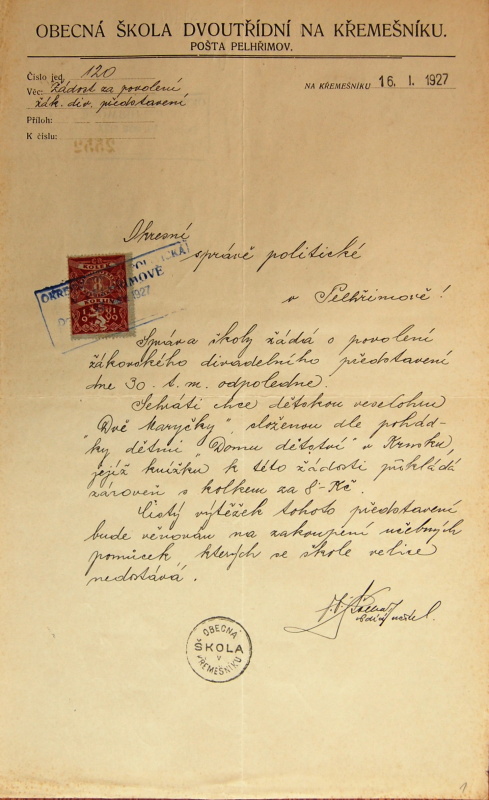 OBECNÁ ŠKOLA DVOUTŘÍDNÍ NA KŘEMEŠNÍKU.
POŠTA PELHŘIMOV.
Číslo jed. 120
Věc: Žádost za povolení
žák. div. představení
Příloh:
K číslu:
NA KŘEMEŠNÍKU 16. I. 1927
Okresní
správě politické
v Pelhřimově!
KOLEK
1919
Správa školy žádá o povolení
žákovského divadelního představení
dne 30. t. m. odpoledne.
Sehráti chce dětskou veselohru
"Dvě Maryčky", složenou dle pohád-
ky dětmi "Domu dětství" v Krnsku,
jejíž knížku k této žádosti přikládá
zároveň s kolkem za 8·- Kč.
Čistý výtěžek tohoto představení
bude věnován na zakoupení učebných
pomůcek kterých se škole velice
nedostává.
učitel.
OBECNÁ
ŠKOLA
V
KŘEMEŠNÍKU